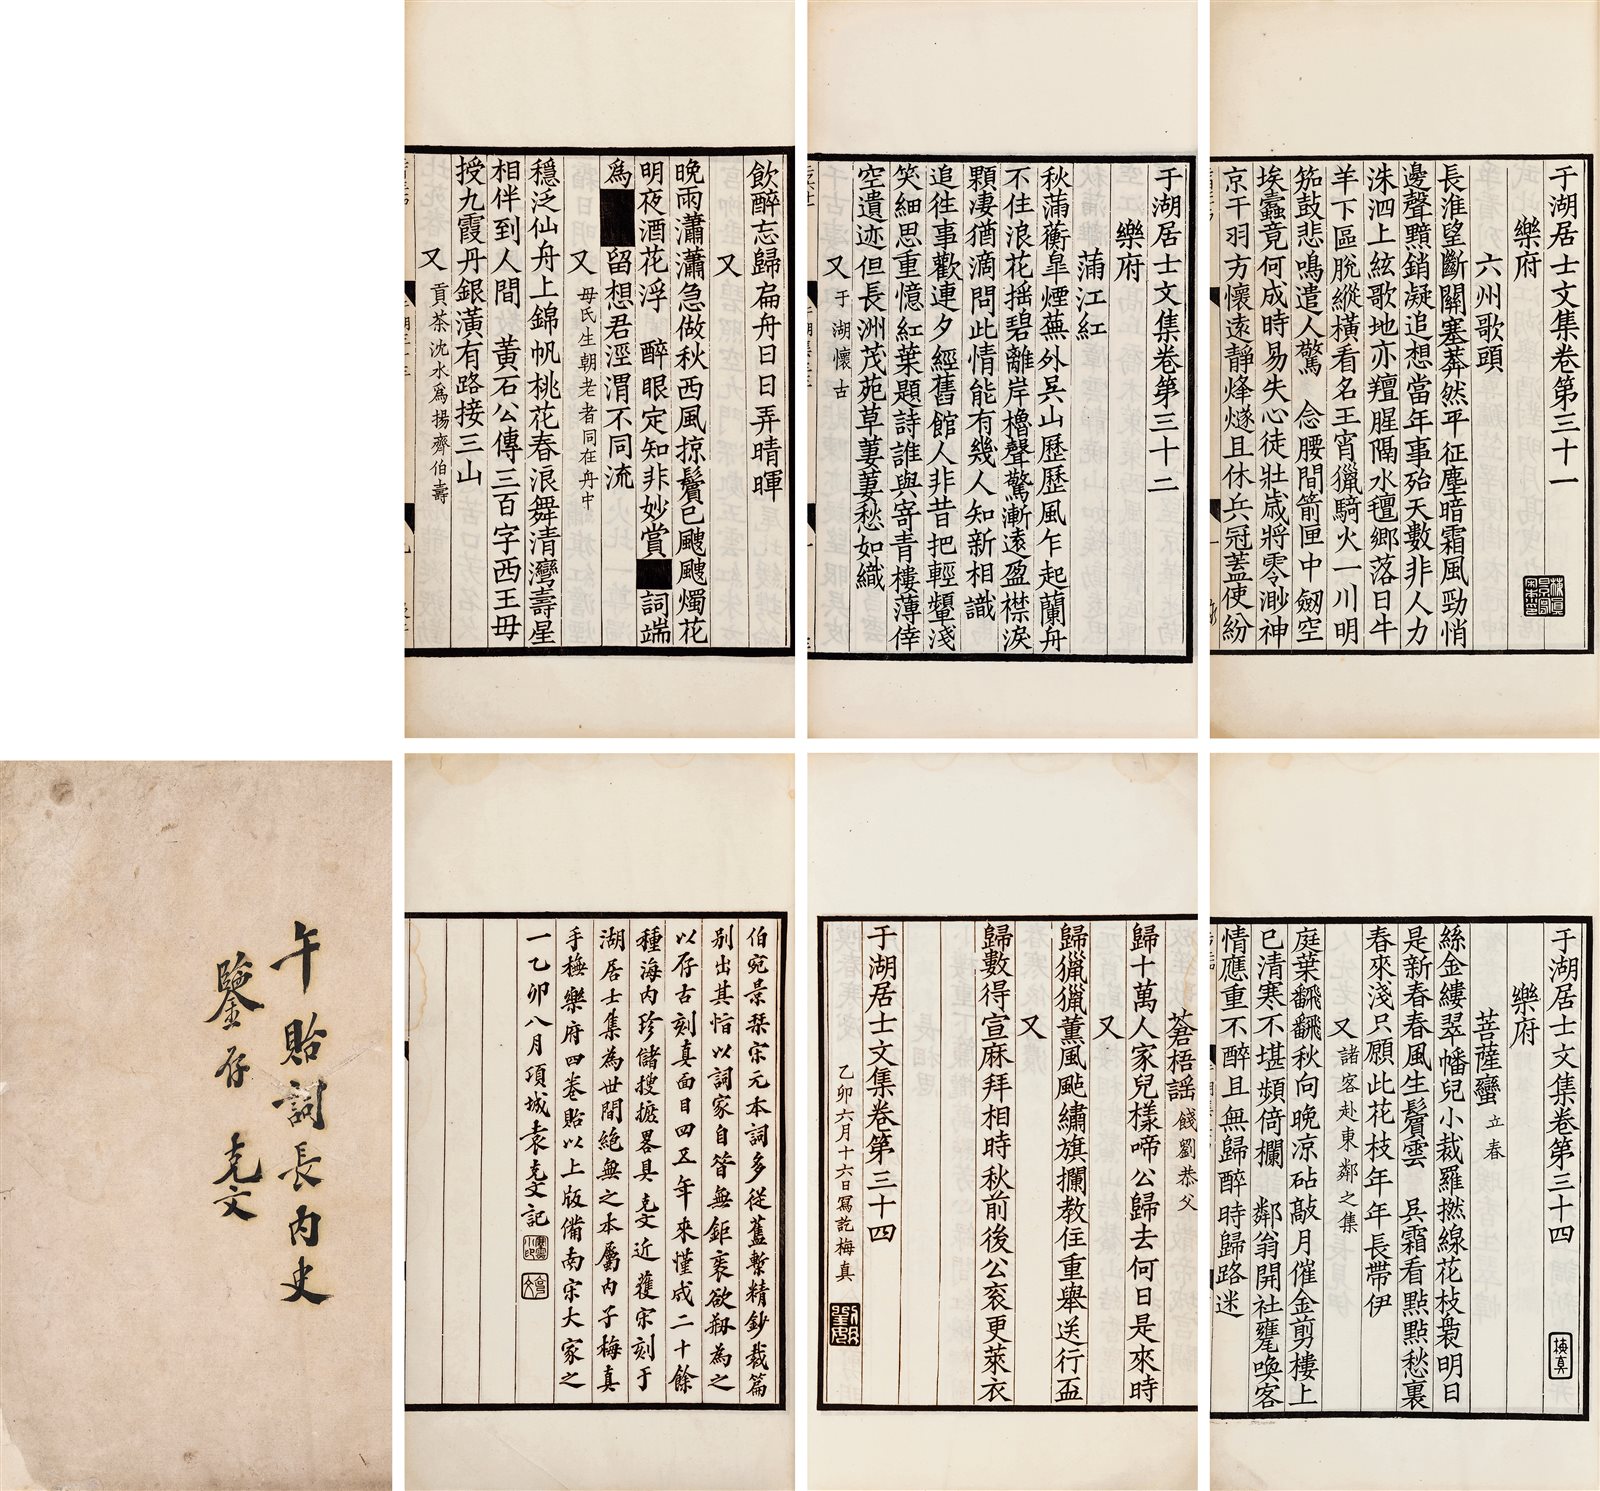 于湖居士文集卷第三十一
樂府
六州歌頭
長淮望斷關塞莽然平征塵暗霜風勁悄
邊聲黯銷凝追想當年事殆天數非人力
洙泗上絃歌地亦羶腥隔水氊鄉落日牛
羊下區脫縱橫看名王宵獵騎火一川明
笳鼓悲鳴遣人驚　念腰間箭匣中劒空
埃蠹竟何成時易失心徒壯歲將零渺神
京干羽方懷遠靜烽燧且休兵冠蓋使紛
于湖居士文集卷第三十二
樂府
蒲江紅
秋蒲蘅皐煙蕪外吳山歷歷風乍起蘭舟
不住浪花搖碧離岸櫓聲驚漸遠盈襟淚
顆凄猶滴問此情能有幾人知新相識
追往事歡連夕經舊館人非昔把輕顰淺
笑細思重憶紅葉題詩誰與寄青樓薄倖
空遺迹但長洲茂苑草萋萋愁如織
又于湖懷古
飲醉忘歸扁舟日日弄晴暉
又
晚雨瀟瀟急做秋西風掠鬢已颼颼燭花
明夜酒花浮　醉眼定知非妙賞■詞端
爲■留想君涇渭不同流
又毋氏生朝老者同在舟中
穩泛仙舟上錦帆桃花春浪舞清灣壽星
相伴到人間　黃石公傳三百字西王毋
授九霞丹銀潢有路接三山
又貢茶沈水爲揚齊伯壽
于湖居士文集卷第三十四
樂府
菩薩蠻立春
絲金縷翠幡兒小裁羅撚線花枝裊明日
是新春春風生鬢雲　吳霜看點點愁裏
春來淺只願此花枝年年長帶伊
又諸客赴東鄰之集
庭葉翻翻秋向晚涼砧敲月催金剪樓上
已清寒不堪頻倚欄　鄰翁開社甕喚客
情應重不醉且無歸醉時歸路迷
蒼梧謠餞劉恭父
歸十萬人家兒樣啼公歸去何日是來時
又
歸獵獵薰風颭繡旗攔教住重舉送行盃
又
歸數得宣麻拜相時秋前後公衮更萊衣
于湖居士文集卷第三十四
乙卯六月十六日寫訖梅真
伯宛景栞宋元本詞多從舊槧精鈔裁篇
別出其恉以詞家自昔無鉅袠欲刱為之
以存古刻真面目四五年來僅成二十餘
種海内珍儲搜摭畧具克文近獲宋刻于
湖居士集為世間絶無之本屬内子梅真
手橅樂府四卷貽以上版備南宋大家之
一乙卯八月項城袁克文記
午貽詞長内史
鑒存　克文